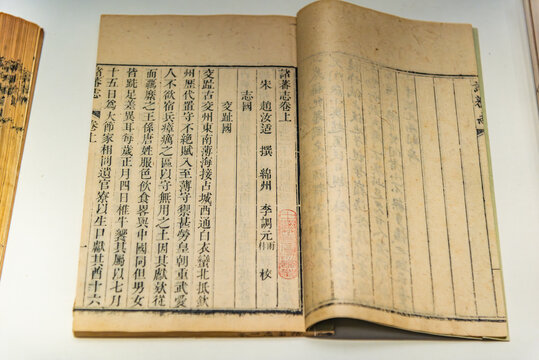 諸蕃志卷上
宋 趙汝适 撰 綿州 李調元 雨村 校
志國
交趾國
交趾古交州東南薄海接占城西通白衣蠻北抵欽
州歷代置守不絕賦入至薄守禦甚勞皇朝重武愛
人不欲宿兵瘴癘之區以守無用之土因其獻欵從
而羈縻之王係唐姓服色飲食畧與中國同但男女
皆跣足差異耳每歲正月四日椎牛饗其屬以七月
十五日為大節家相問遺官寮以生口獻其酋十六
諸蕃志 卷上
一